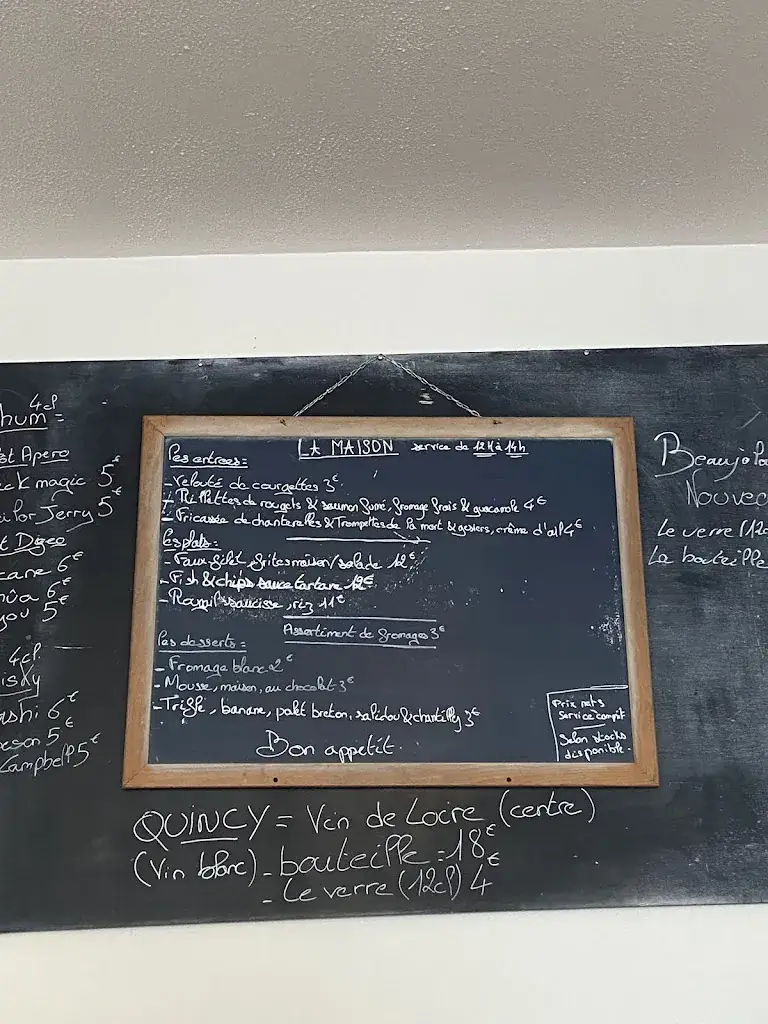 4cl
hum =
st Apero
ck magic 5€
ilor Jerry 5€
t Digeo
cane 6€
6€
you 5€
4cl
isky
ashi 6€
eson 5€
Campbell 5€
LA MAISON service de 12H à 14h
Les entrees :
- Velouté de courgettes 3€.
- Rillettes de rougets & saumon fumé, fromage frais & guacamole 4€
- Fricassée de chanterelles & Trompettes de la mort & gesiers, crème d'ail 4€
Les plats :
- Faux filet frites maison/salade 12€
- Fish & chips sauce tartare 12€
- saucisse, riz 11€
Assortiment de fromages 3€
Les desserts :
- Fromage blanc 2€
- Mousse, maison, au chocolat 3€
- Trifle, banane, palet breton, salidou & chantilly 3€
Bon appetit.
Prix nets
Service compit
Selon stocks
disponible.
QUINCY = Vin de Loire (centre)
(Vin blanc) - bouteille = 18€
- Le verre (12cl) 4€
Beaujola
Nouvea
Le verre (12c
La bouteille